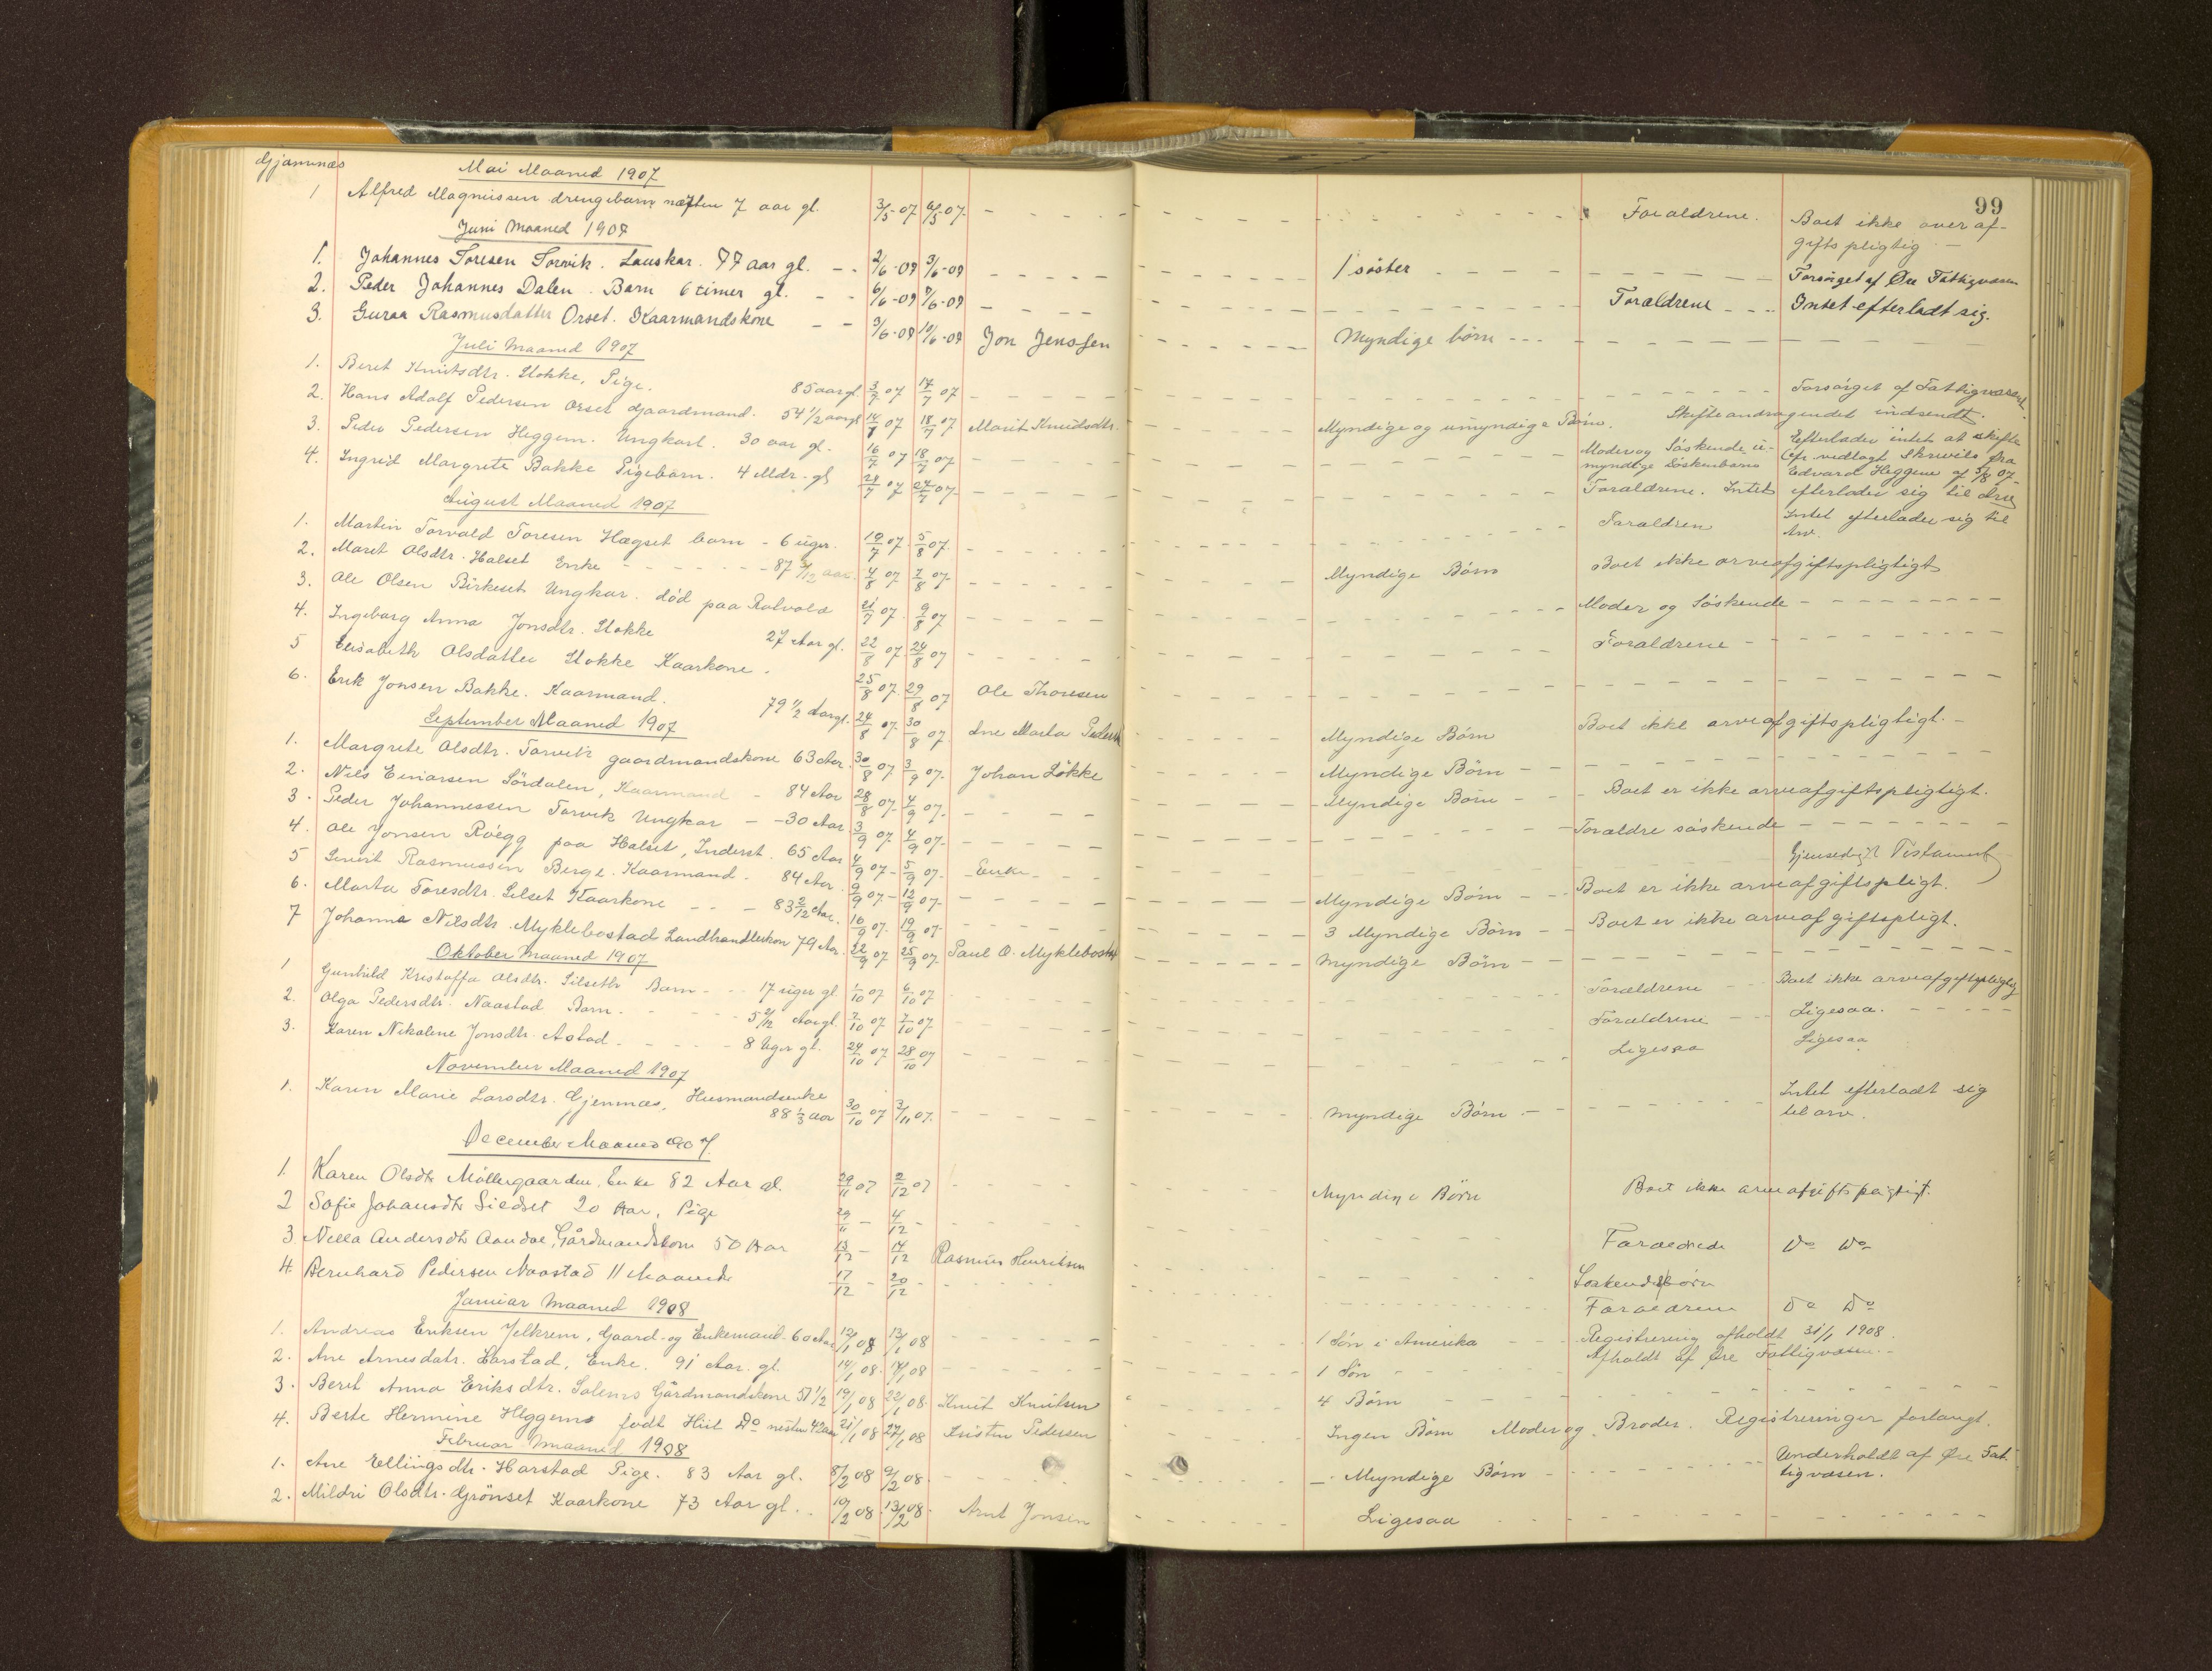 99
Gjemnæs
Mai Maaned 1907
1 Alfred Magnussen drengebarn næsten 7 aar gl. 3/5-07 6/5-07 - - - Forældrene. Boet ikke arveaf-
giftspligtig -
Juni Maaned 1907
1. Johannes Toresen Torvik. Lauskar. 77 aar gl. - - 2/6-07 3/6-07 - - - 1 søster - - - Forsørget af Øre Fattigvæsen
2. Peder Johannes Dalen. Barn 6 timer gl. - - 6/6-07 7/6-07 - - - Forældrene - - - Intet efterladt sig.
3. Guraa Rasmusdatter Orset. Kaarmandskone - - 9/6-07 10/6-07 Jon Jenssen - - - Myndige børn - - -
Juli Maaned 1907
1. Beret Knutsdtr. Stokke, Pige. 85 aar gl. 3/7 07 17/7 07 - - - Forsørget af Fattigvæsenet
2. Hans Adolf Pedersen Orset Gaardmand. 54 1/2 aar gl 14/7 07 18/7 07 Marit Knudsdtr. - - - Myndige og umyndige Børn. Skifteandragendet indsendt.
3. Peder Pedersen Heggem. Ungkarl. 30 aar gl. 16/7 07 18/7 07 - - - Moder og Søskende u- Efterlader intet at skifte
myndige Søskenbarn Cfr. vedlagt Skrivels fra
Edvard Heggem af 3/8 07-
4. Ingrid Margrete Bakke Pigebarn. 4 Mdr. gl 24/7 07 27/7 07- - - - Forældrene. Intet efterlader sig til Arv
August Maaned 1907
1. Martin Torvald Toresen Hægset barn - 6 uger. 10/7 07. 5/8 07. - - - Forældren Intet efterlader sig til
Arv.
2. Marit Olsdtr. Halset Enke - - - 87 aar. 4/8 07 7/8 07- - - - Myndige Børn Boet ikke arveafgiftspligtigt
3. Ole Olsen Birkeset Ungkar. død paa Rotvold 21/7 07. 9/8 07 - - - Moder og Søskende - - -
4. Ingeborg Anna Jonsdtr. Stokke 27 Aar gl. 22/8 07 24/8 07 - - - Forældrene - - -
5 Elisabeth Olsdatter Stokke Kaarkone. 25/8 07. 29/8 07 Ole Thoresen - - -
6. Erik Jonsen Bakke. Kaarmand. 79 1/2 Aar gl. 24/8 07. 30/8 07 Ane Marta Pedersd - - - Myndige Børn Boet ikke arveafgiftspligtigt. -
September Maaned 1907
1. Margrete Olsdtr. Torvik gaardmandskone 63 Aar. 30/8 07 3/9 07. Johan Løkke - - - Myndige Børn - - -
2. Nils Einarsen Sørdalen, Kaarmand - 84 Aar 28/8 07- 4/9 07. - - - Myndige Børn - - Boet er ikke arveafgiftspligtigt.
3. Peder Johannessen Torvik Ungkar - - 30 Aar. 3/9 07. 4/9 07- - - - Forældre søskende - - -
4. Ole Jonsen Röegg paa Halset, Inderst. 65 Aar 4/9 07- 5/9 07- Enke - - - Gjensedigt Testament
5 Sivert Rasmussen Berge. Kaarmand - 84 Aar. 9/9 07- 12/9 07- - - - Myndige Børn - - Boet er ikke arveafgiftspligt.
6. Marta Toresdtr. Silset Kaarkone - - - 83 2/12 Aar. 16/9 07. 19/9 07- - - - 3 Myndige Børn - - Boet er ikke arveafgiftspligt.
7 Johanna Nilsdtr. Myklebostad Landhandlerkon 79 Aar. 22/9 07 25/9 07. Paul O. Myklebostad - - - Myndige Børn - - -
Oktober Maaned 1907
1 Gunhild Kristoffa Olsdtr. Silseth Barn - - 17 uger gl 1/10 07 6/10 07 - - - Forældrene - Boet ikke arveafgiftspligtig
2. Olga Pedersdtr. Naastad Barn. - - - Aar gl. 2/10 07 7/10 07. - - - Forældrene - - Ligesaa. - - -
3. Karen Nikoline Jonsdtr. Astad. - - - 8 Uger gl. 24/10 07 28/10 07 - - - Ligesaa Ligesaa
November Maaned 1907
1. Karen Marie Larsdtr. Gjemnæs, Husmandsenke
88 1/3 aar 30/10 07 3/11 07. - - - Myndige Børn - - - Intet efterladt sig
til arv.
December Maaned 1907.
1. Karen Olsdtr Möllergaarden, Enke 82 Aar gl. 29/11 07 2/12 07 - - - Myndige Børn Boet ikke arveafgiftspligtigt.
2 Sofie Johansdtr Silset 20 Aar, Pige 29/11 - 4/12 - - - Forældrede Do Do
3. Nella Andersdtr Aandal, Gårdmandskone 50 Aar 13/12 - 14/12 Rasmus Henriksen - - - Søskendebørn
4. Bernhard Pedersen Naastad 11 Maaneder 17/12 - 20/12 - - - Forældrene Do Do
Januar Maaned 1908
1. Andreas Eriksen Jelkrem, Gaard- og Enkemand - 60 Aar 12/1 08 13/1 08 - - - 1 Søn i Amerika - - Registrering afholdt 31/1 1908.
2. Ane Arnesdatr. Harstad, Enke. 91 Aar. gl. 14/1 08. 17/1 08 - - - 1 Søn - - Afholdt af Øre Fattigvæsen. -
3. Beret Anna Eriksdtr. Solems Gårdmandskone 51 1/2 19/1 08 22/1 08. Knut Knutsen - - - 4 Børn - - -
4. Berte Hermine Heggems født Hiit Do næsten 42 aar 21/1 08 27/1 08 Kristen Pedersen - - - Ingen Børn Moder og Broder. Registreringer forlangt.
Februar Maaned 1908
1. Ane Ellingsdtr. Harstad Pige. 83 Aar gl. 8/2 08 9/2 08. - - - Myndige Børn - - - Underholdt af Øre Fat-
tigvæsen.
2. Mildri Olsdtr. Grönset Kaarkone 73 Aar gl. . 10/2 08. 13/2 08. Arnt Jonsen - - - Ligesaa - - -